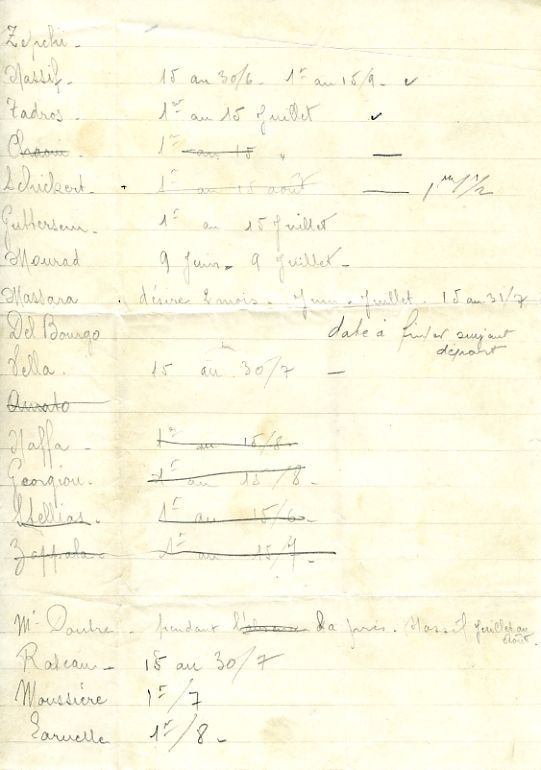 Zepchi -
Nassif - 15 au 30/6 - 1er au 15/9 - ✓
Tadros - 1er au 15 Juillet ✓
1er au 15 " —
Schickert - 1er au 15 août —
Guttersem - 1r au 15 Juillet
Mourad 9 Juin - 9 Juillet -
Massara . désire 2 mois - Juin - Juillet . 15 au 31/7
Del Bourgo date à fixer suivant
départ
Vella . 15 au 30/7 —
Amato
Naffa - 1er au 15/8 -
Georgiou - 1r au 15/8 -
Stellias - 1r au 15/6 -
Zappala - 1r au 15/7 -
Mr Daubre - pendant Nassif Juillet ou
Août.
Rateau - 15 au 30/7
Moussière 1er/7
Laruelle 1er/8 -